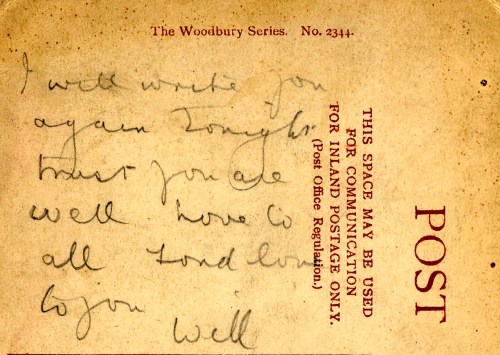 The Woodbury Series. No. 2344.
I will write you
again Tonight
trust you are
well love to
all Fond love
to you
Will
THIS SPACE MAY BE USED
FOR COMMUNICATION
FOR INLAND POSTAGE ONLY.
(Post Office Regulation.)
POST